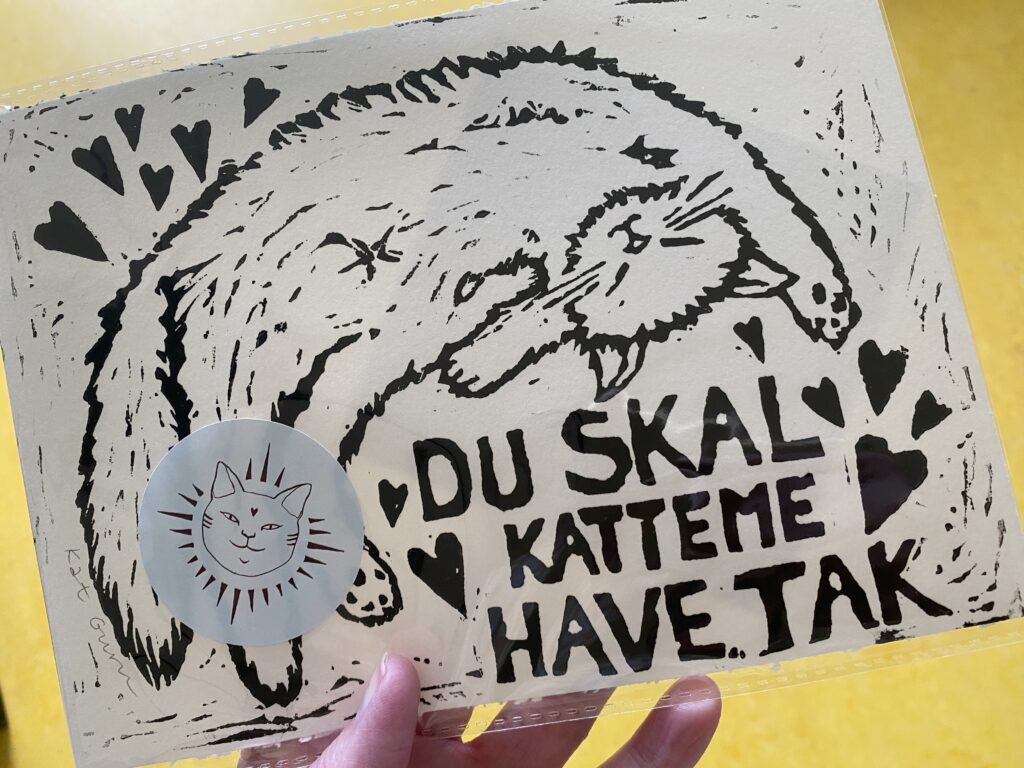 DU SKAL
KATTEME
HAVE TAK
Kat